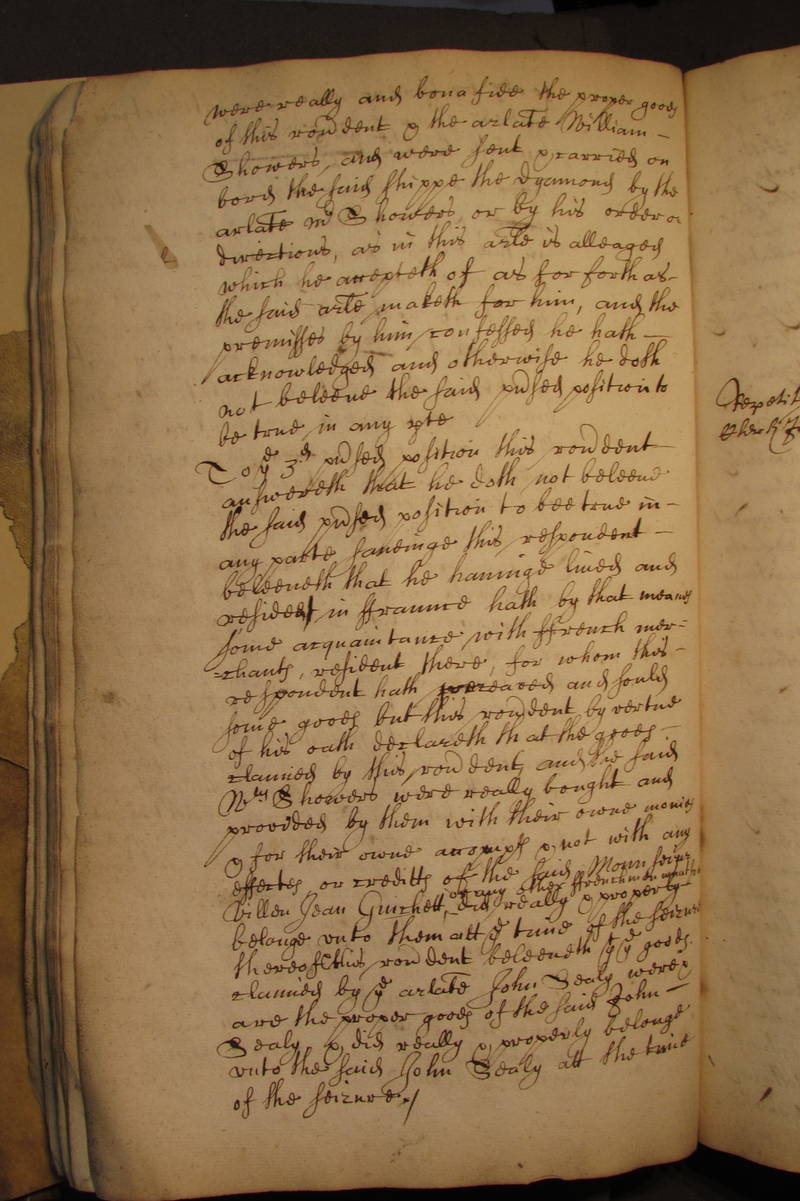 were really and bona fide the proper goods
of this rondent & the arlate William -
Showers, and were sent & carried on
bord the said shippe the dyamond by the
arlate Mr Showers or by his order or
directions, as in this arle is alleaged
which he accepteth of as far forth as -
the said arle maketh for him, and the
premisses by him confessed he hath -
acknowledged and otherwise he doth
not beleeve the said pdsed position to
be true in any pte
To ye 3d pdsed position this rondent
answereth that he doth not beleeve
the said pdsed position to bee true in -
any parte saveinge this respondent -
beleeveth that he havinge lived and
resided in ffraunce hath by that meanes
some acquaintance with ffrench mer=
=chants, resident there, for whom this -
respondent hath and sould
some goods but this rondent by vertue
of his oath declareth that the goods -
claimed by this rondent and the said
Mr Showers were really bought and
provided by them with their owne monies
& for their owne accompts & not with any
effectes or creditts of the said Monnseiur
Villen Jean Guichett, or any other ffrenchmen
did really & properly
belonge unto them att ye time of the seizure
thereof this rondent beleeveth yt ye goods
claimed by ye arlate John Sealy were &
are the proper goods of the said John -
Sealy & did really & properly belonge
unto the said John Sealy att the time
of the seizure ./
Repetit